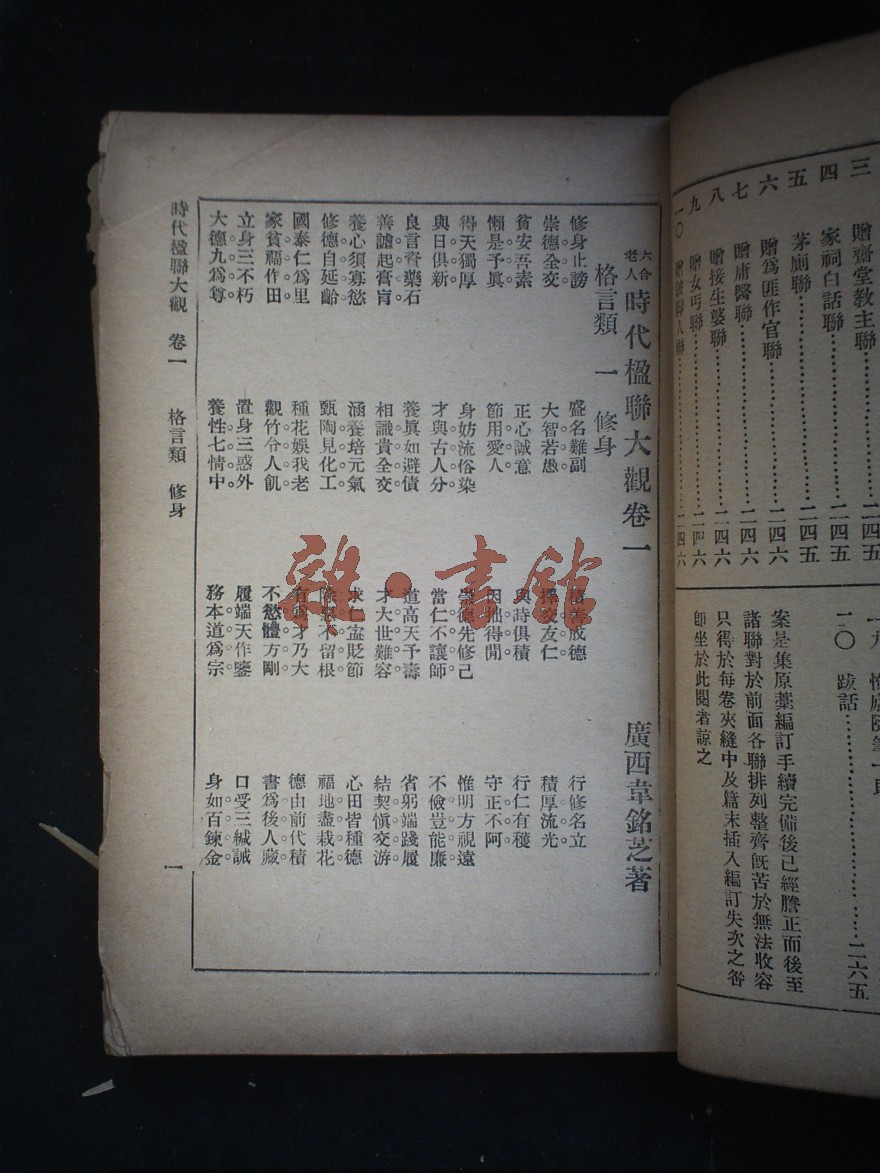 三 贈齋堂教主聯……二四五
四 家祠白話聯……二四五
五 茅廁聯……二四五
六 贈爲匪作官聯……二四六
七 贈庸醫聯……二四六
八 贈接生婆聯……二四六
九 贈女丐聯……二四六
一〇 贈 人聯……二四六
一九
二〇 跋話……二六五
案是集原藁編訂手續完備後已經謄正而後至
諸聯對於前面各聯排列整齊旣苦於無法收容
只得於每卷夾縫中及篇末插入編訂失次之咎
卽坐於此閱者諒之
六合老人 時代楹聯大觀卷一
廣西韋銘芝著
格言類 一 修身
修身止謗 盛名難副 積善成德 行修名立
崇德全交 大智若愚 擇交友仁 積厚流光
貧安吾素 正心誠意 與時俱積 行仁有穫
懶是予眞 節用愛人 因拙得閒 守正不阿
得天獨厚 身妨流俗染 崇德先修己 惟明方視遠
與日俱新 才與古人分 當仁不讓師 不儉豈能廉
良言資藥石 養眞如避債 道高天予壽 省躬端踐履
善謔起膏肓 相識貴全交 才大世難容 結契愼交游
養心須寡慾 涵養培元氣 求仁宜貶節 心田皆種德
修德自延齡 甄陶見化工 除惡不留根 福地盡栽花
國泰仁爲里 種花娛我老 有爲才乃大 德由前代積
家貧福作田 觀竹分人飢 不慾體方剛 書爲後人藏
立身三不朽 置身三惑外 履端天作鑒 口受三緘誡
大德九爲尊 養性七情中 務本道爲宗 身如百鍊金
時代楹聯大觀 卷一 格言類 修身 一
雜·書館